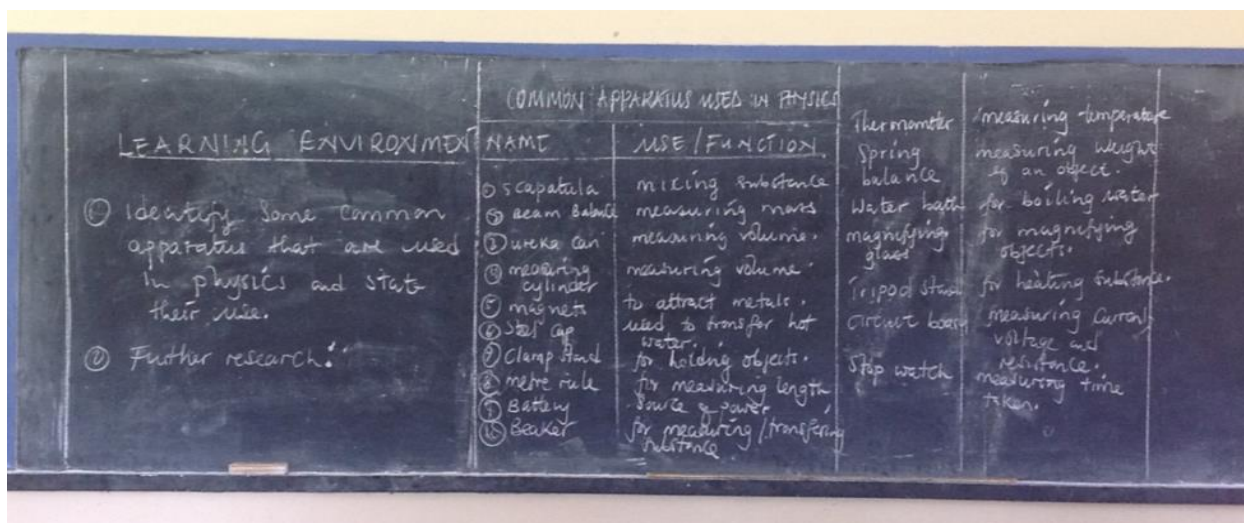 LEARNING ENVIRONMENT
① Identify some common
apparatus that are used
in physics and state
their use.
② Further research!
COMMON APPARATUS USED IN PHYSICS
NAME USE/FUNCTION
① Scapatula mixing substance
② Beam Balance measuring mass
③ ureka can measuring volume.
④ measuring cylinder measuring volume
⑤ magnets to attract metals.
⑥ cup used to transfer hot
water.
⑦ Clamp stand for holding objects.
⑧ metre rule for measuring length
⑨ Battery Source of power
⑩ Beaker for measuring/transfering
substance
Thermometer measuring temperature
Spring measuring weight
balance of an object.
Water bath for boiling water
magnifying for magnifying
glass objects.
Tripod stand for heating substance.
circuit board measuring current
voltage and
resistance.
Stop watch measuring time
taken.